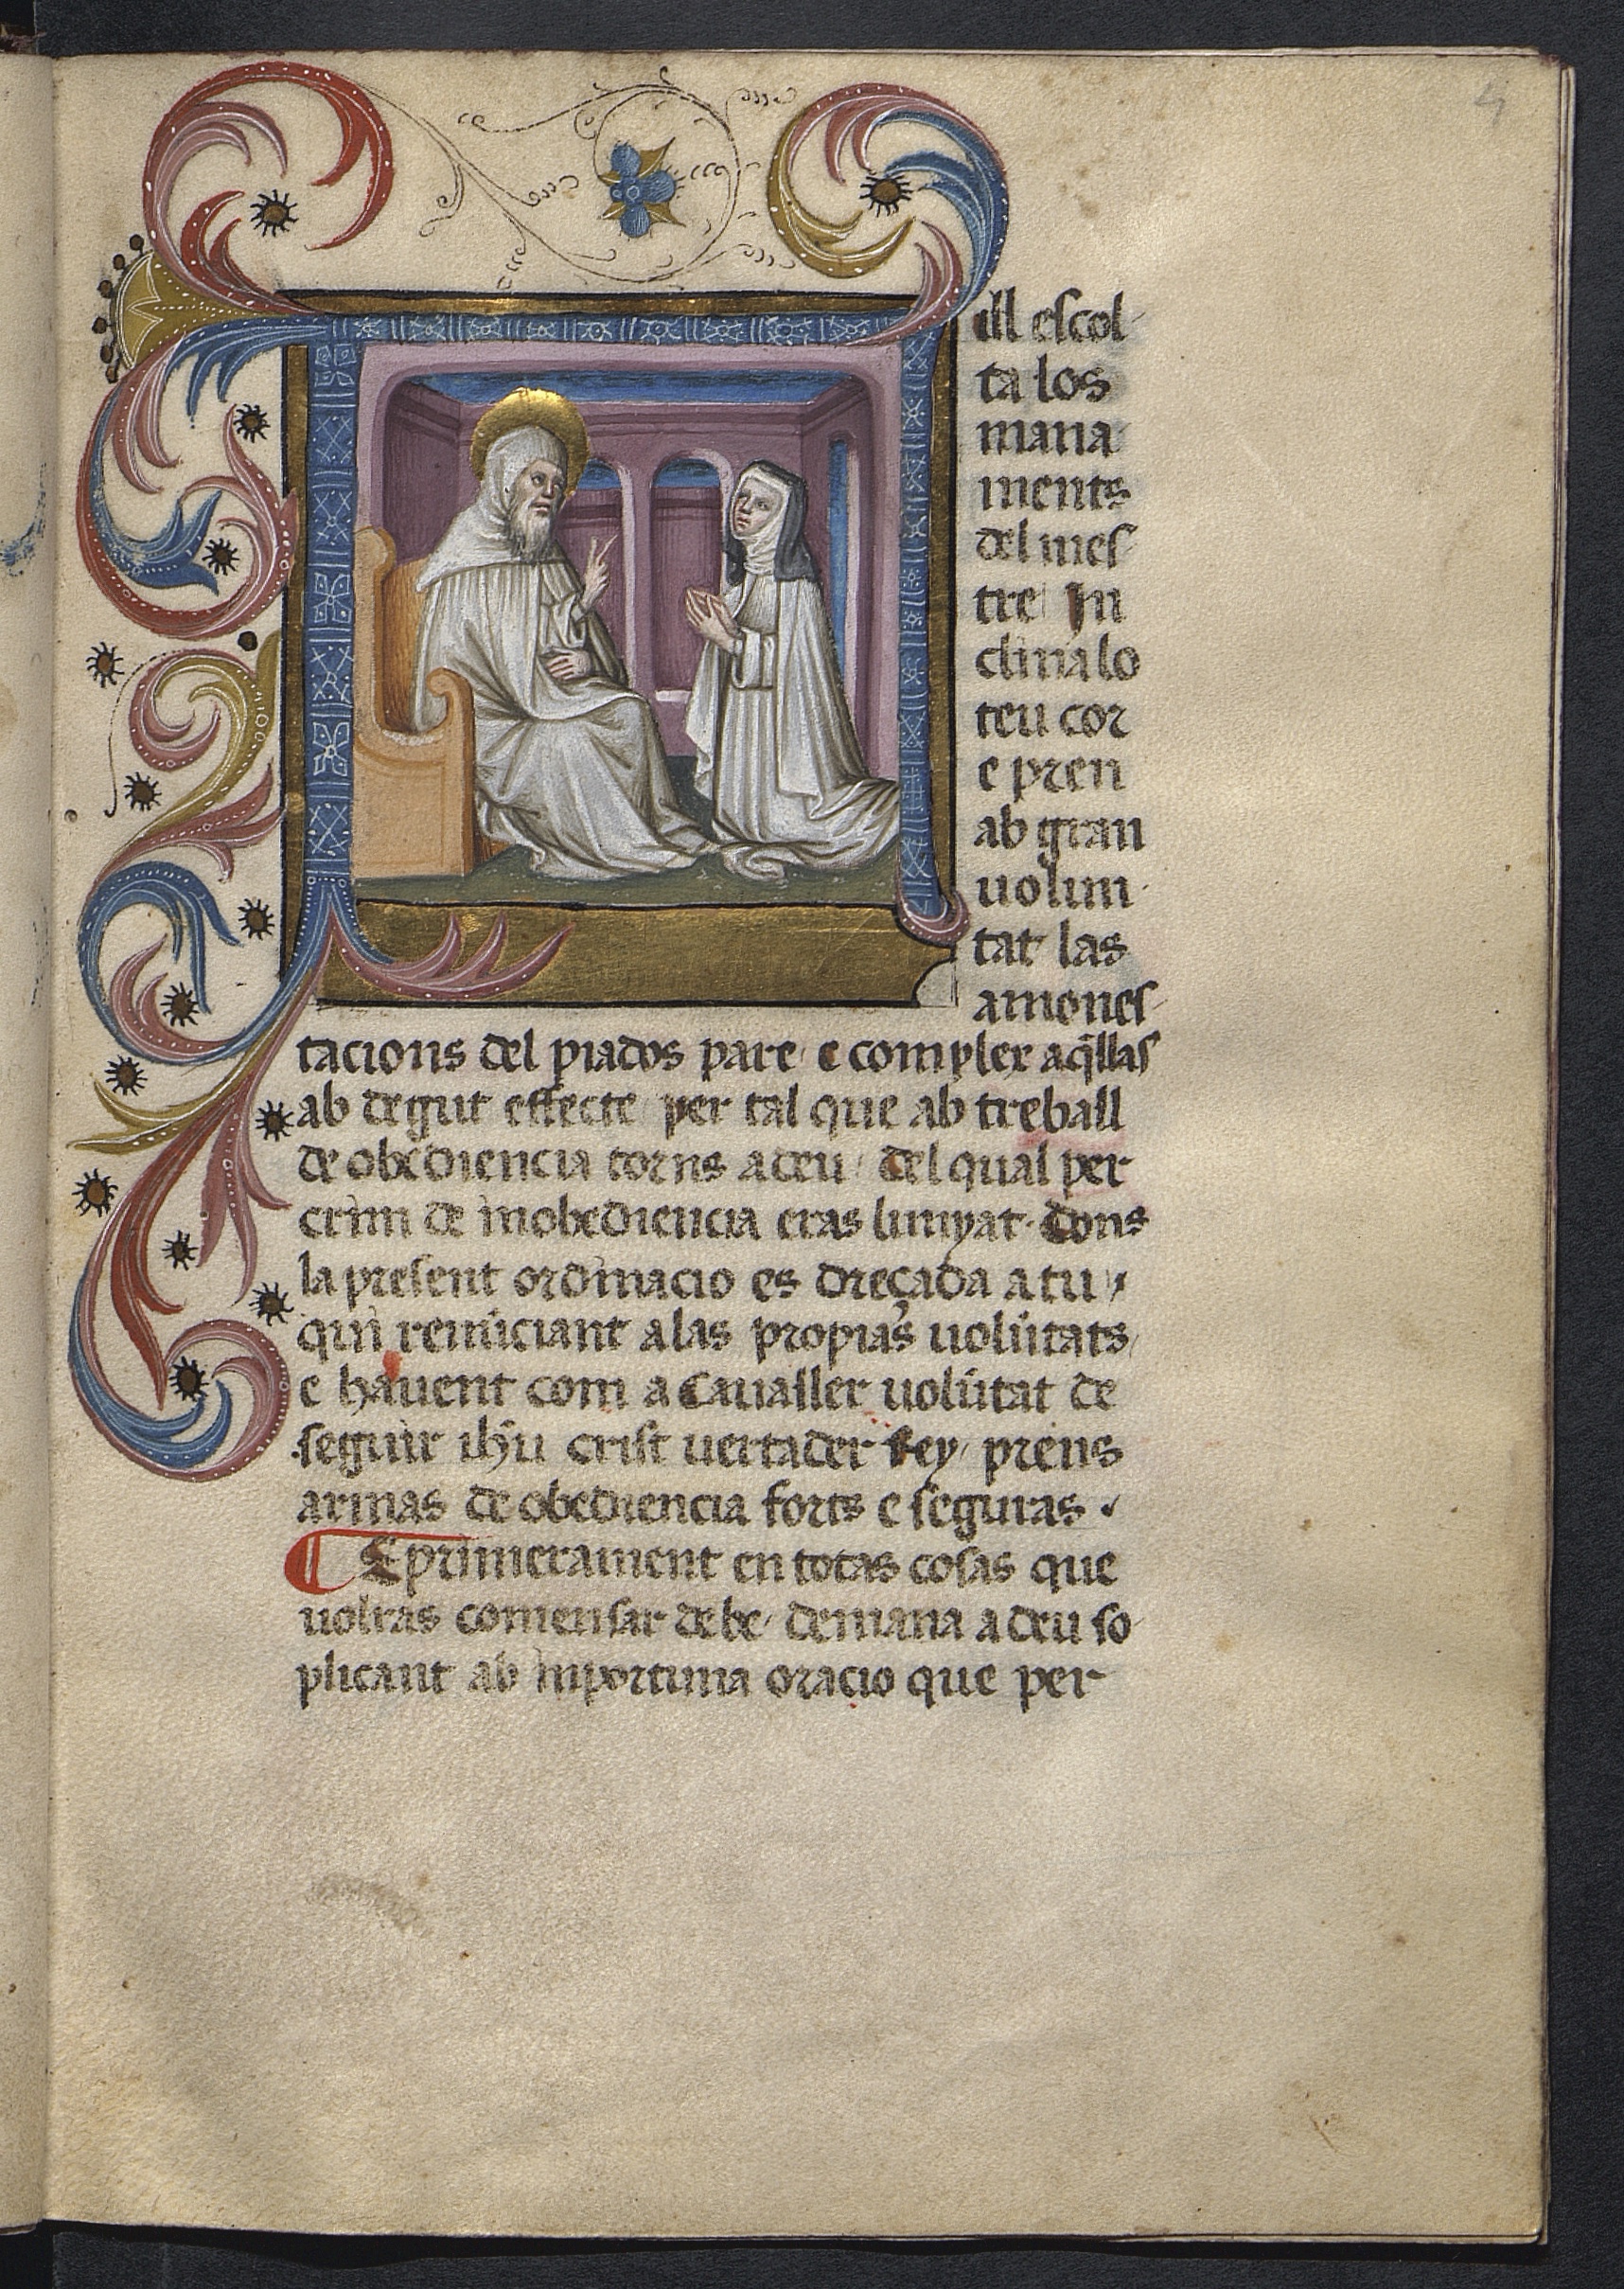 4
ill escol
ta los
mana
ments
del mes
tre / In
clina lo
teu cor
e pren
ab gran
uolun
tat las
amones
tacions del piados pare / e complex aq̃llas
ab degut effecte / per tal que ab treball
de obediencia torns a deu / del qual per
crim de inobediencia eras lunyat · Dons
la present ordinacio es dreçada a tu /
qui renũciant a las propias uolũtats /
e hauent com a Cauasller uolũtat de
seguir ihũ crist uertader Rey / prens
armas de obediencia forts e seguras ·
¶ E primerament en totas cosas que
uolras comensar de be / demana a deu so
plicant ab inportuna oracio que per